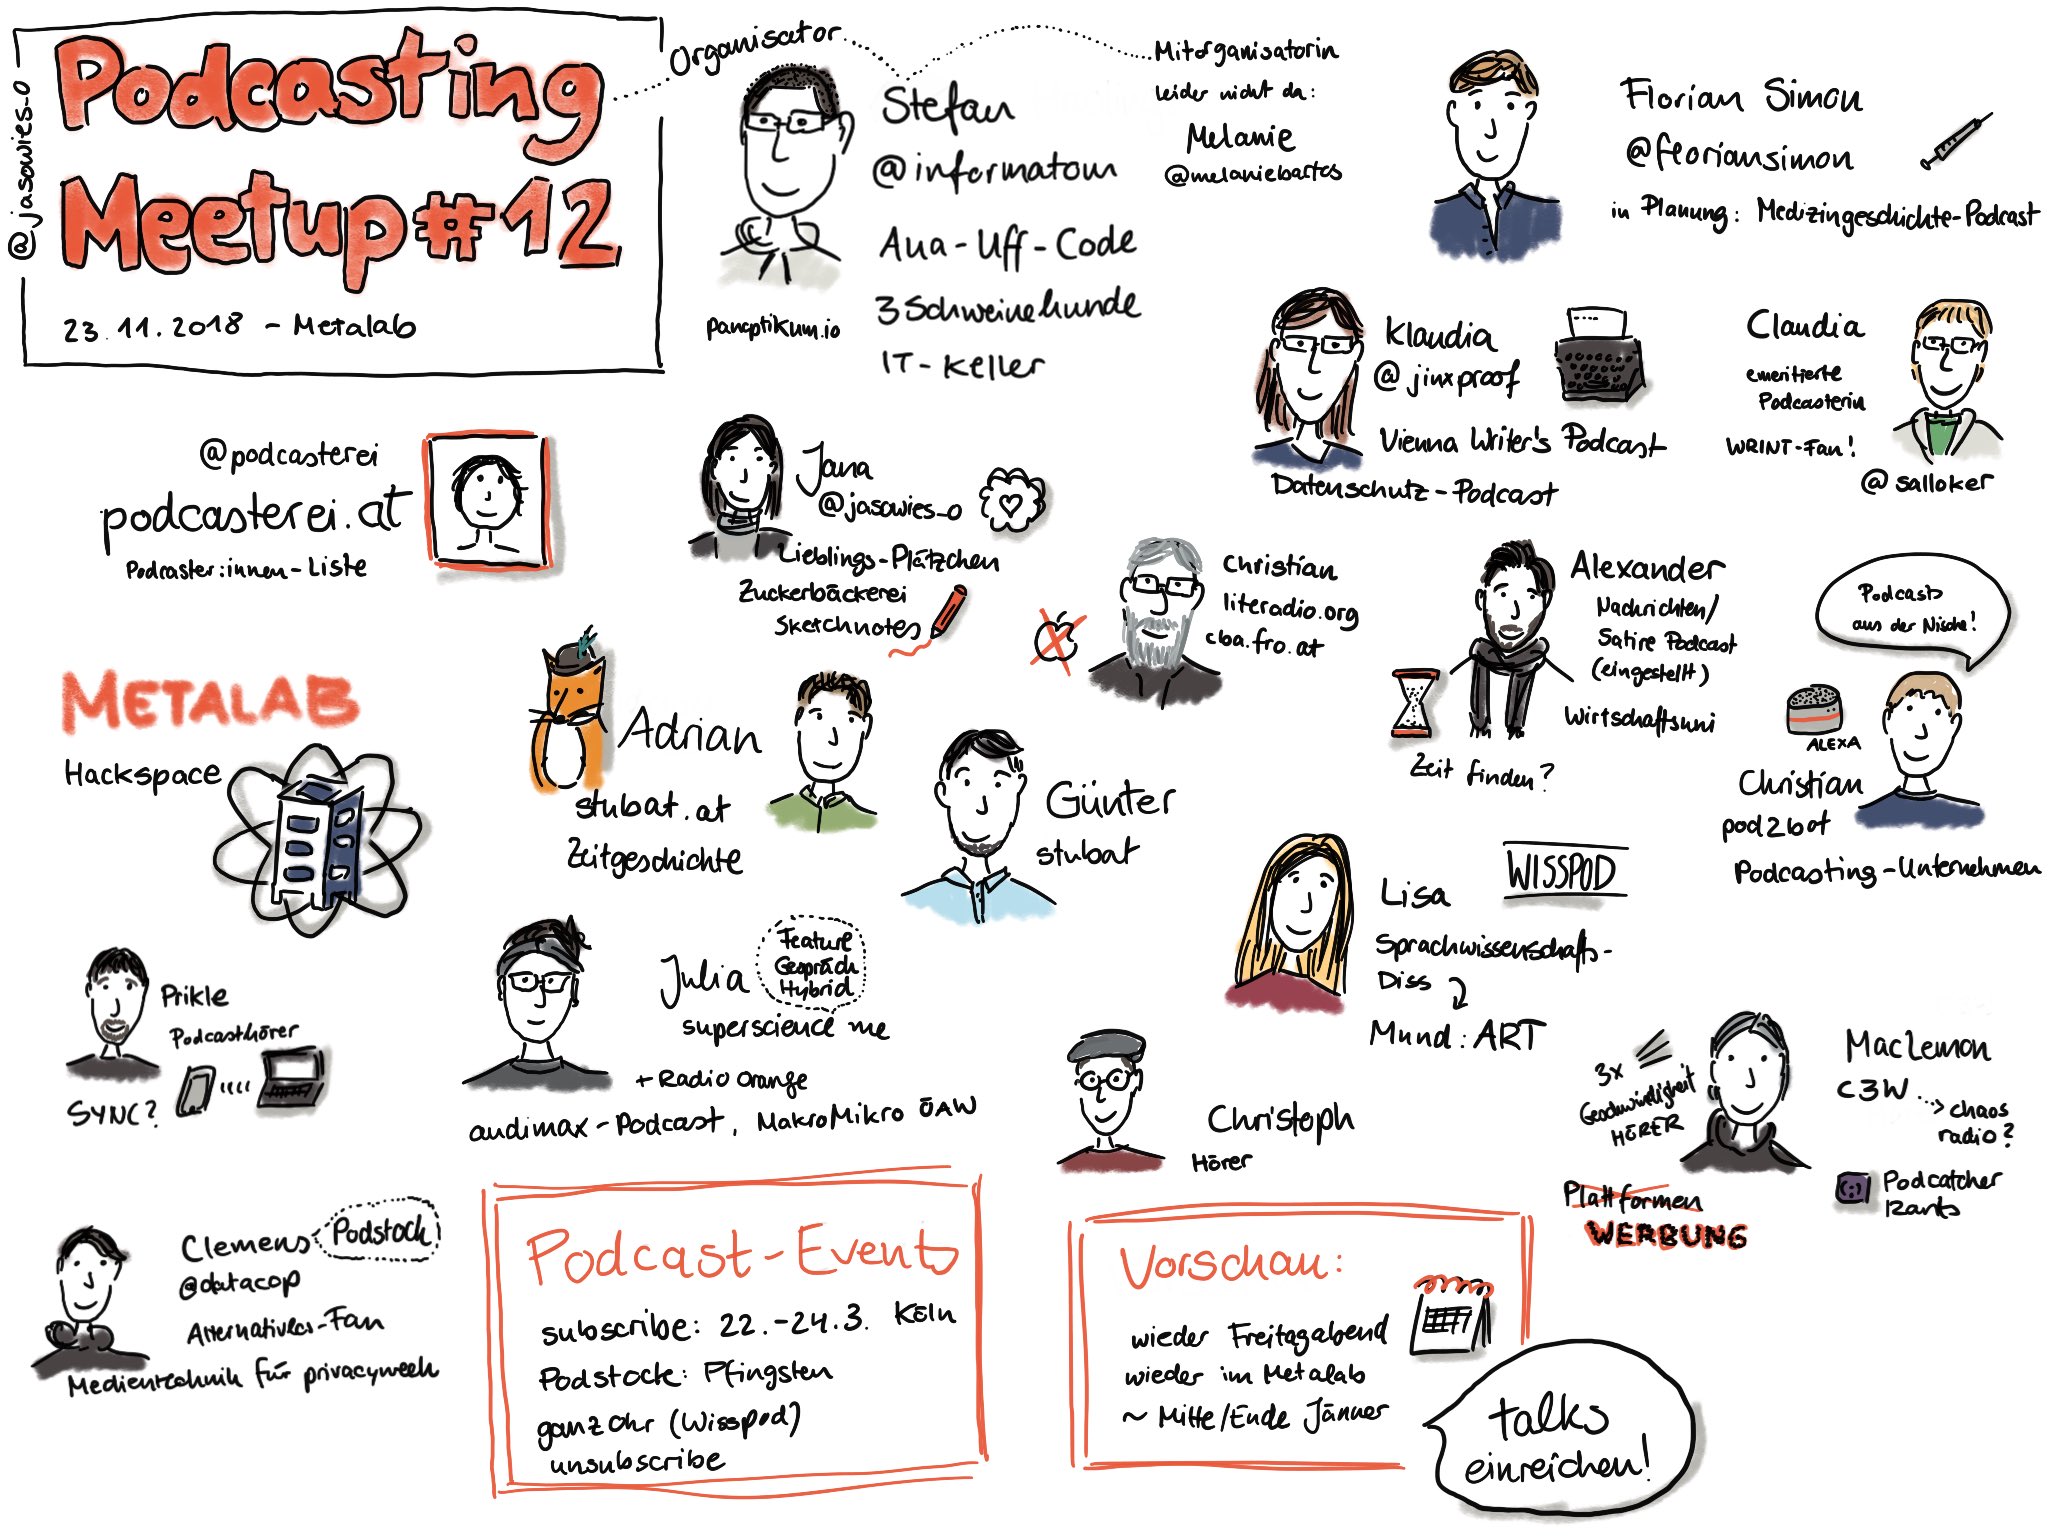 @jasowies_o
Podcasting
Meetup #12
23.11.2018 - Metalab
Organisator
Stefan
@informatom
Aua-Uff-Code
3Schweinehunde
IT-Keller
panoptikum.io
Mitorganisatorin
leider nicht da:
Melanie
@melaniebartos
Florian Simon
@floriansimon
in Planung: Medizingeschichte-Podcast
Klaudia
@jinxproof
Vienna Writer's Podcast
Datenschutz-Podcast
Claudia
emeritierte
Podcasterin
WRINT-Fan!
@salloker
@podcasterei
podcasterei.at
Podcaster:innen-Liste
Jana
@jasowies_o
Lieblings-Plätzchen
Zuckerbäckerei
Sketchnotes
Christian
literadio.org
cba.fro.at
Alexander
Nachrichten/
Satire Podcast
(eingestellt)
Wirtschaftsuni
Zeit finden?
Podcasts
aus der Nische!
ALEXA
Christian
pod2bot
Podcasting-Unternehmen
METALAB
Hackspace
Adrian
stubat.at
Zeitgeschichte
Günter
stubat
Lisa
WISSPOD
Sprachwissenschafts-
Diss
Mund:ART
Prikle
Podcasthörer
SYNC?
Julia
Feature
Gespräch
Hybrid
superscience me
+ Radio Orange
audimax-Podcast, MakroMikro ÖAW
Christoph
Hörer
3x
Geschwindigkeit
HÖRER
MacLemon
C3W
chaos
radio?
Podcatcher
Rants
Plattformen
WERBUNG
Clemens
Podstock
@datacop
Alternativlos-Fan
Medientechnik für privacyweek
Podcast-Events
subscribe: 22.-24.3. Köln
Podstock: Pfingsten
ganz Ohr (Wisspod)
unsubscribe
Vorschau:
wieder Freitagabend
wieder im Metalab
~ Mitte/Ende Jänner
talks
einreichen!